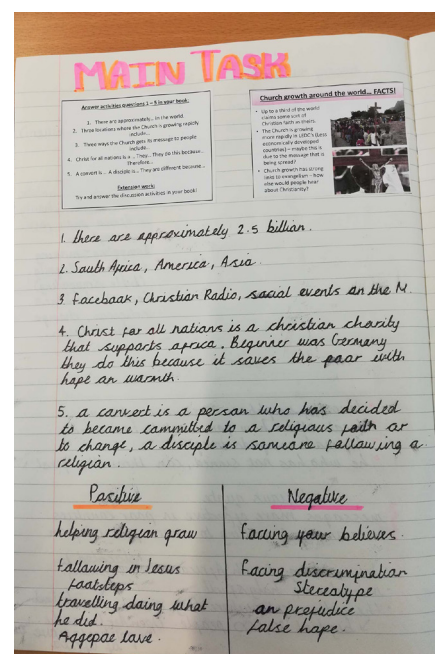 MAIN TASK
Answer activities questions 1 – 5 in your book:
1. There are approximately… in the world
2. Three locations where the Church is growing rapidly
include…
3. Three ways the Church gets its message to people
include…
4. Christ for all nations is a … They… They do this because…
Therefore…
5. A convert is… A disciple is… They are different because…
Extension work:
Try and answer the discussion activities in your book!
Church growth around the world… FACTS!
• Up to a third of the
world claims some sort of
Christian faith as theirs.
• The Church is growing
more rapidly in LEDC's (Less
economically developed
countries) – maybe this is
due to the message that is
being spread?
• Church growth has strong
links to evangelism – how
else would people hear
about Christianity?
1. there are approximately 2.5 billion.
2. South Africa, America, Asia.
3. Facebook, Christian Radio, social events on the M.
4. Christ for all nations is a christian charity
that supports africa. Beginner was Germany
they do this because it saves the poor with
hope an warmth.
5. a convert is a person who has decided
to became committed to a religious faith or
to change, a disciple is someone following a
religion.
Positive
Negative
helping religion grow
forcing your believes.
following in Jesus
footsteps
facing discrimination
Stereotype
travelling doing what
he did.
an prejudice
false hope.
Aggepae love.